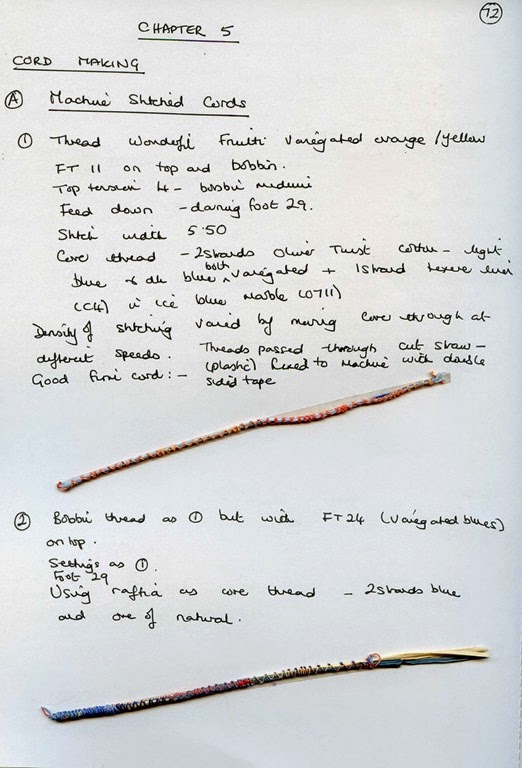 72
CHAPTER 5
CORD MAKING
A Machine Stitched Cords
1 Thread Wonderfil Fruitti variegated orange/yellow
FT 11 on top and bobbin.
Top tension 4 - bobbin medium
Feed down - darning foot 29.
Stitch width 5.50
Core thread - 2 strands Oliver Twist cotton - light
blue & dk blue both variegated + 1 strand Texere
(C4) in ice blue marble (0711)
Density of stitching varied by moving core through at
different speeds. Threads passed through cut straw -
(plastic) fixed to machine with double
Good firm cord:- sided tape
2 Bobbin thread as 1 but with FT24 (variegated blues)
on top.
Settings as 1.
Foot 29
Using raffia as core thread - 2 strands blue
and one of natural.